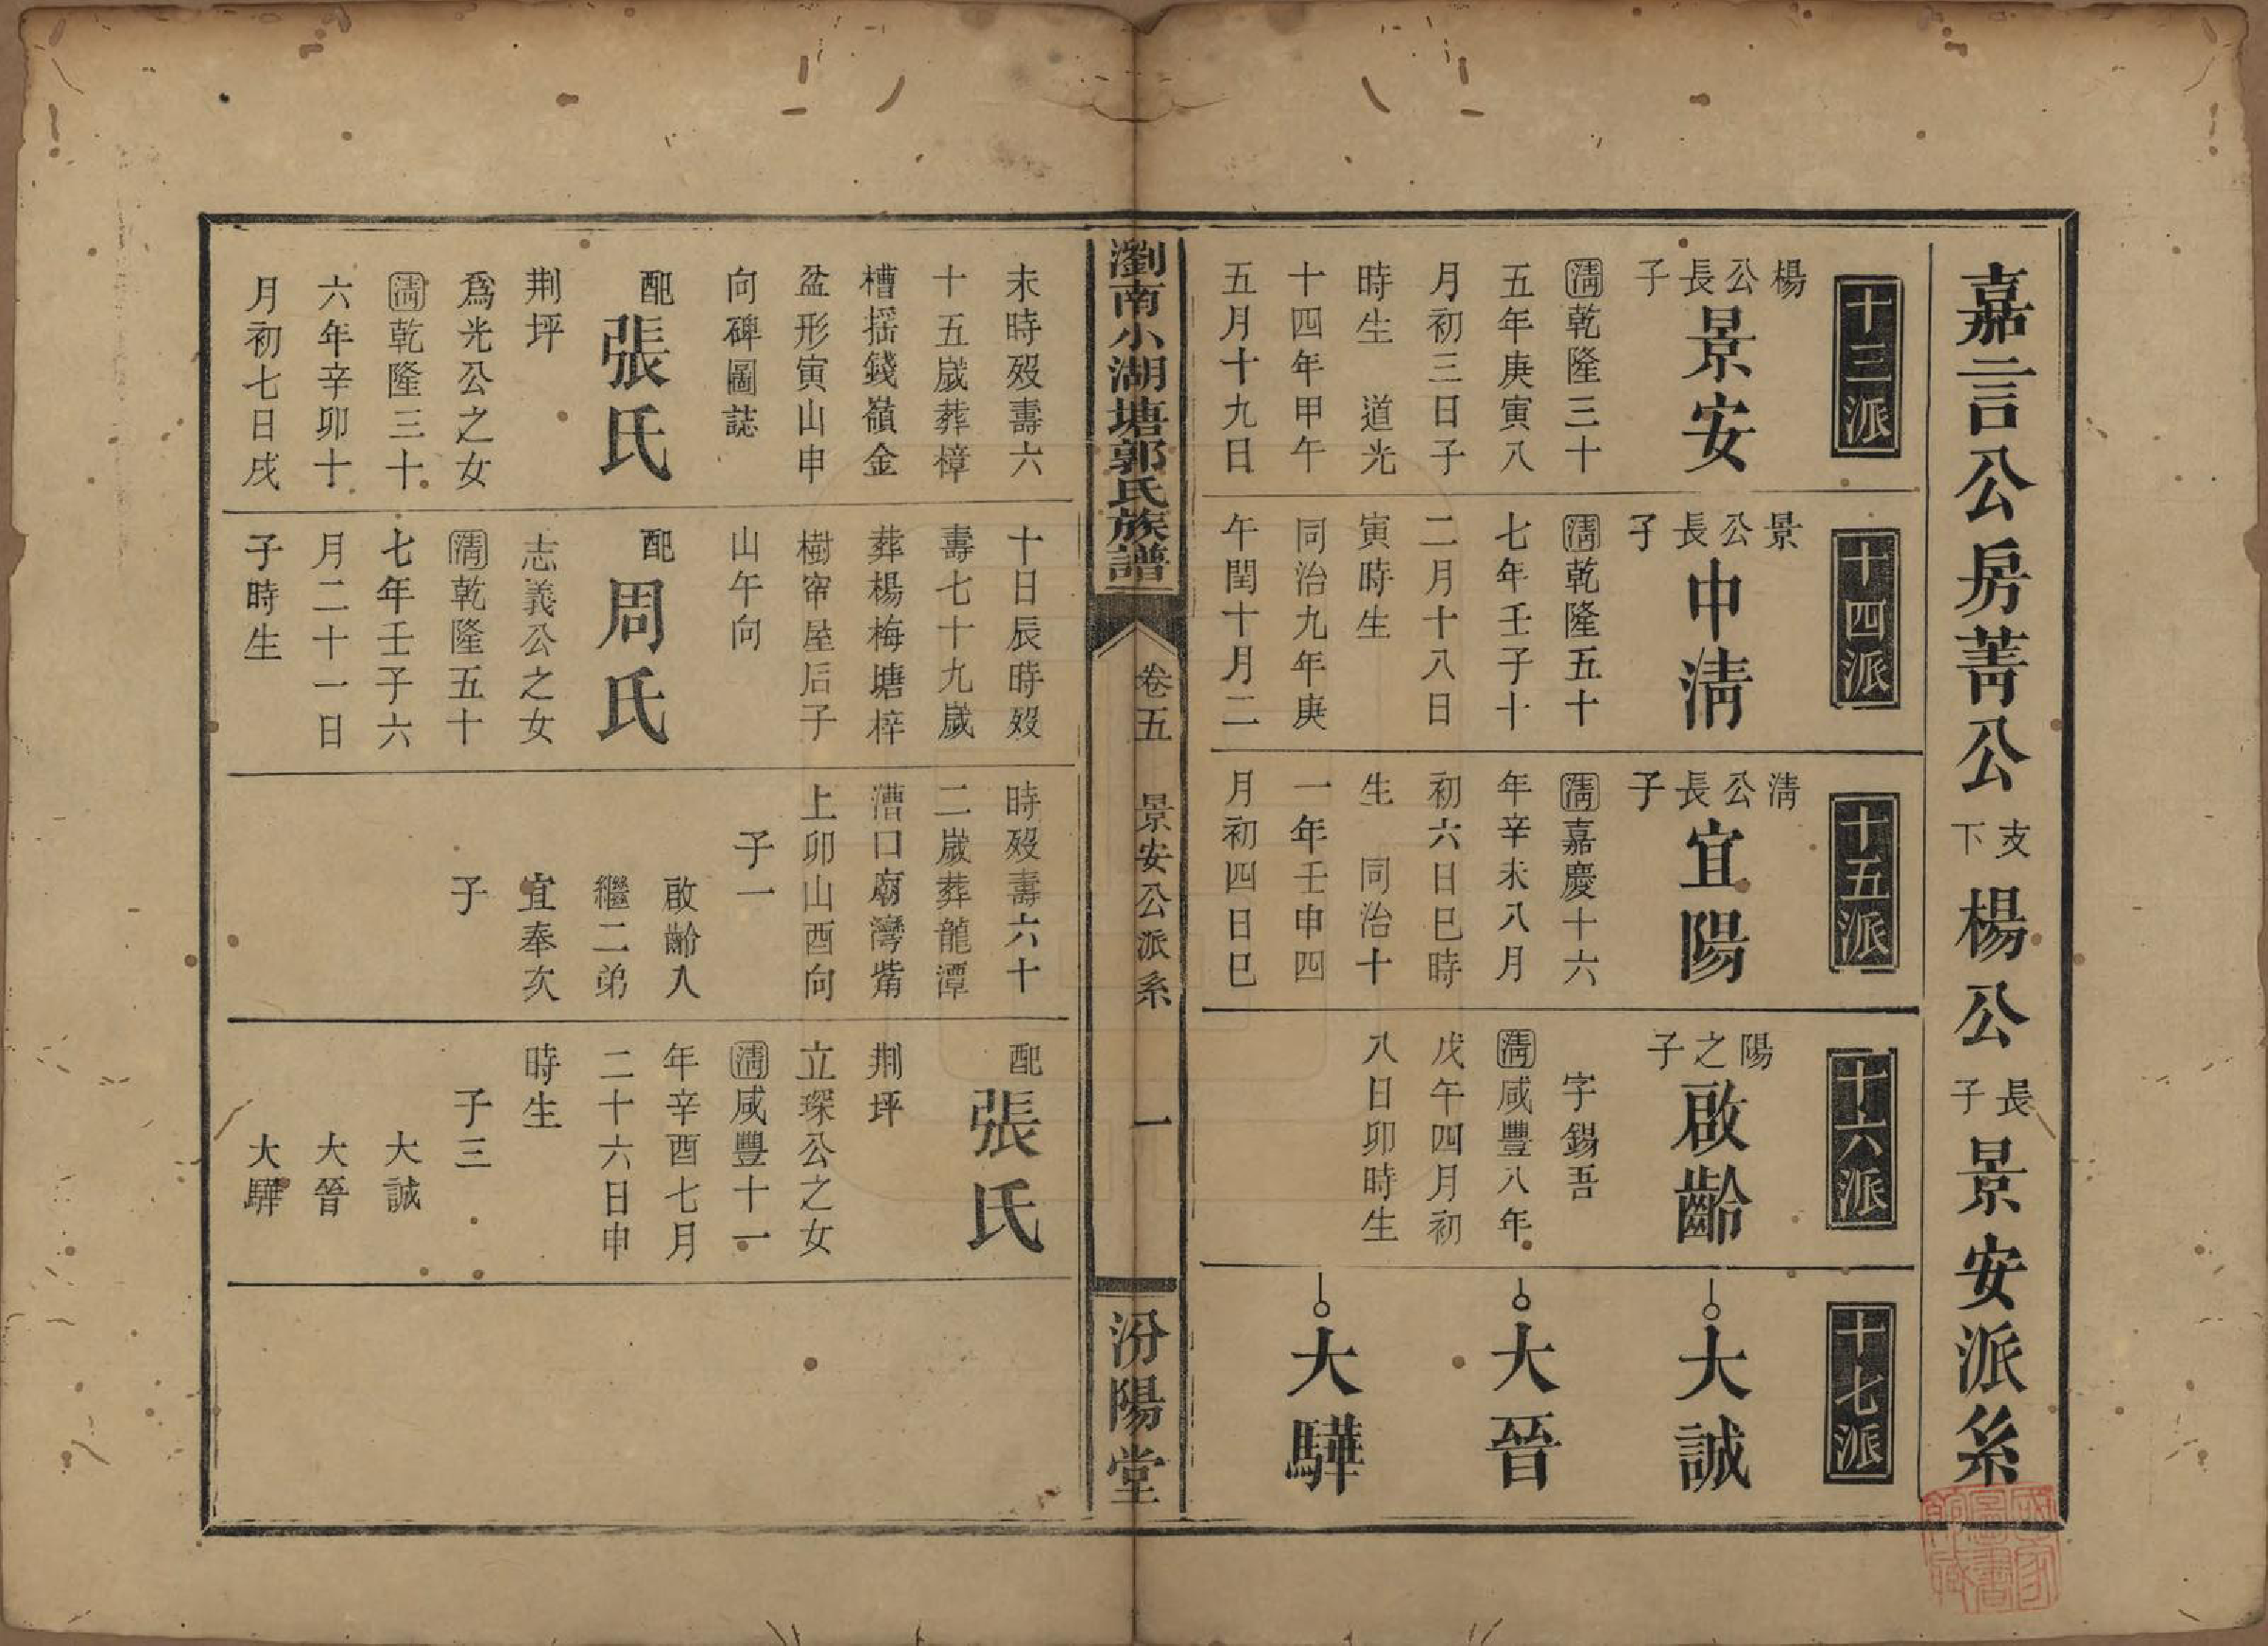 嘉言公房菁公支下楊公長子景安派系
十三派
楊公長子
景安
淸乾隆三十
五年庚寅八
月初三日子
時生　道光
十四年甲午
五月十九日
十四派
景公長子
中淸
淸乾隆五十
七年壬子十
二月十八日
寅時生
同治九年庚
午閏十月二
十五派
淸公長子
宜陽
淸嘉慶十六
年辛未八月
初六日巳時
生　同治十
一年壬申四
月初四日巳
十六派
陽之子
啟齡
字錫吾
淸咸豐八年
戊午四月初
八日卯時生
十七派
大誠
大晉
大驊
瀏南小湖塘郭氏族譜
卷五　景安公派系　一
汾陽堂
未時歿壽六
十五歲葬樟
槽搖錢嶺金
盆形寅山申
向碑圖誌
配張氏
荆坪
爲光公之女
淸乾隆三十
六年辛卯十
月初七日戌
十日辰時歿
壽七十九歲
葬楊梅塘梓
樹窩屋后子
山午向
配周氏
志義公之女
淸乾隆五十
七年壬子六
月二十一日
子時生
時歿壽六十
二歲葬龍潭
漕口廟灣觜
上卯山酉向
子一
啟齡入
繼二弟
宜奉次
子
配張氏
荆坪
立琛公之女
淸咸豐十一
年辛酉七月
二十六日申
時生
子三
大誠
大晉
大驊
國家圖書館藏